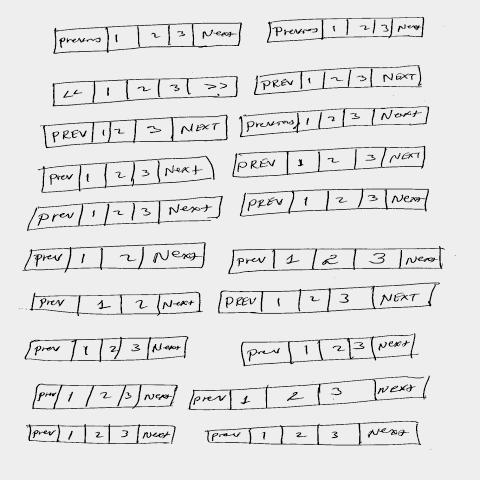 Previous 1 2 3 Next
Previous 1 2 3 Next
<< 1 2 3 >>
PREV 1 2 3 NEXT
PREV 1 2 3 NEXT
Previous 1 2 3 Next
Prev 1 2 3 Next
PREV 1 2 3 NEXT
Prev 1 2 3 Next
PREV 1 2 3 Next
Prev 1 2 Next
Prev 1 2 3 Next
Prev 1 2 Next
PREV 1 2 3 NEXT
Prev 1 2 3 Next
Prev 1 2 3 Next
Prev 1 2 3 Next
Prev 1 2 3 Next
Prev 1 2 3 Next
Prev 1 2 3 Next